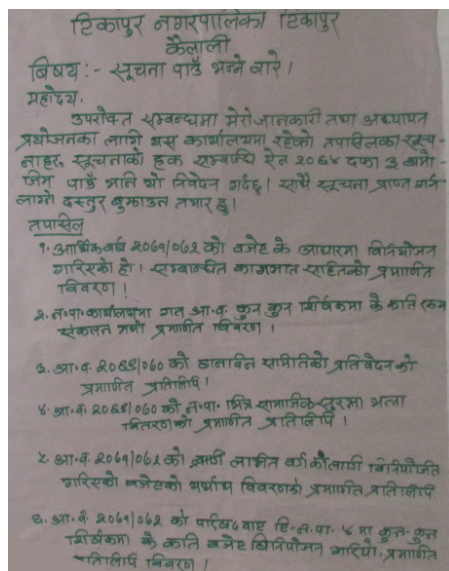 टिकापुर नगरपालिका टिकापुर
कैलाली
बिषय :- सूचना पाउँ भन्ने बारे ।
महोदय,
उपरोक्त सम्बन्धमा मेरो जानकारी तथा अध्यापन
प्रयोजनका लागि यस कार्यालयमा रहेको तपासिलका सूच-
नाहरु, सूचनाको हक सम्बन्धि ऐन २०६४ दफा ३ बमो-
जिम पाउँ भनि यो निवेदन गर्दछु । साथै सूचना प्राप्त गर्न
लाग्ने दस्तुर बुझाउन तयार छु ।
तपासिल
१. आर्थिक बर्ष २०७१/०७२ को बजेट के आधारमा बिनियोजन
गरिएको हो । सम्बन्धित कागजात सहितको प्रमाणित
बिवरण ।
२. न.पा. कार्यालयमा गत आ.व. कुन कुन शिर्षकमा के कति रकम
संकलन भयो प्रमाणित बिवरण ।
३. आ.व. को समितिको प्रतिवेदनको
प्रमाणीत प्रतिलिपि ।
४. आ.व. को न.पा. भित्र सामाजिक सुरक्षा भत्ता
बितरणको प्रमाणीत प्रतिलिपि ।
५. आ.व. २०७१/०७२ को लागि बिनियोजित
गरिएको बजेटको यथार्थ बिवरणको प्रमाणीत प्रतिलिपि
६. आ.व. २०७१/०७२ को टि.न.पा. ४ मा कुन-कुन
शिर्षकमा के कति बजेट बिनियोजन गरियो, प्रमाणीत
प्रतिलिपि बिवरण ।